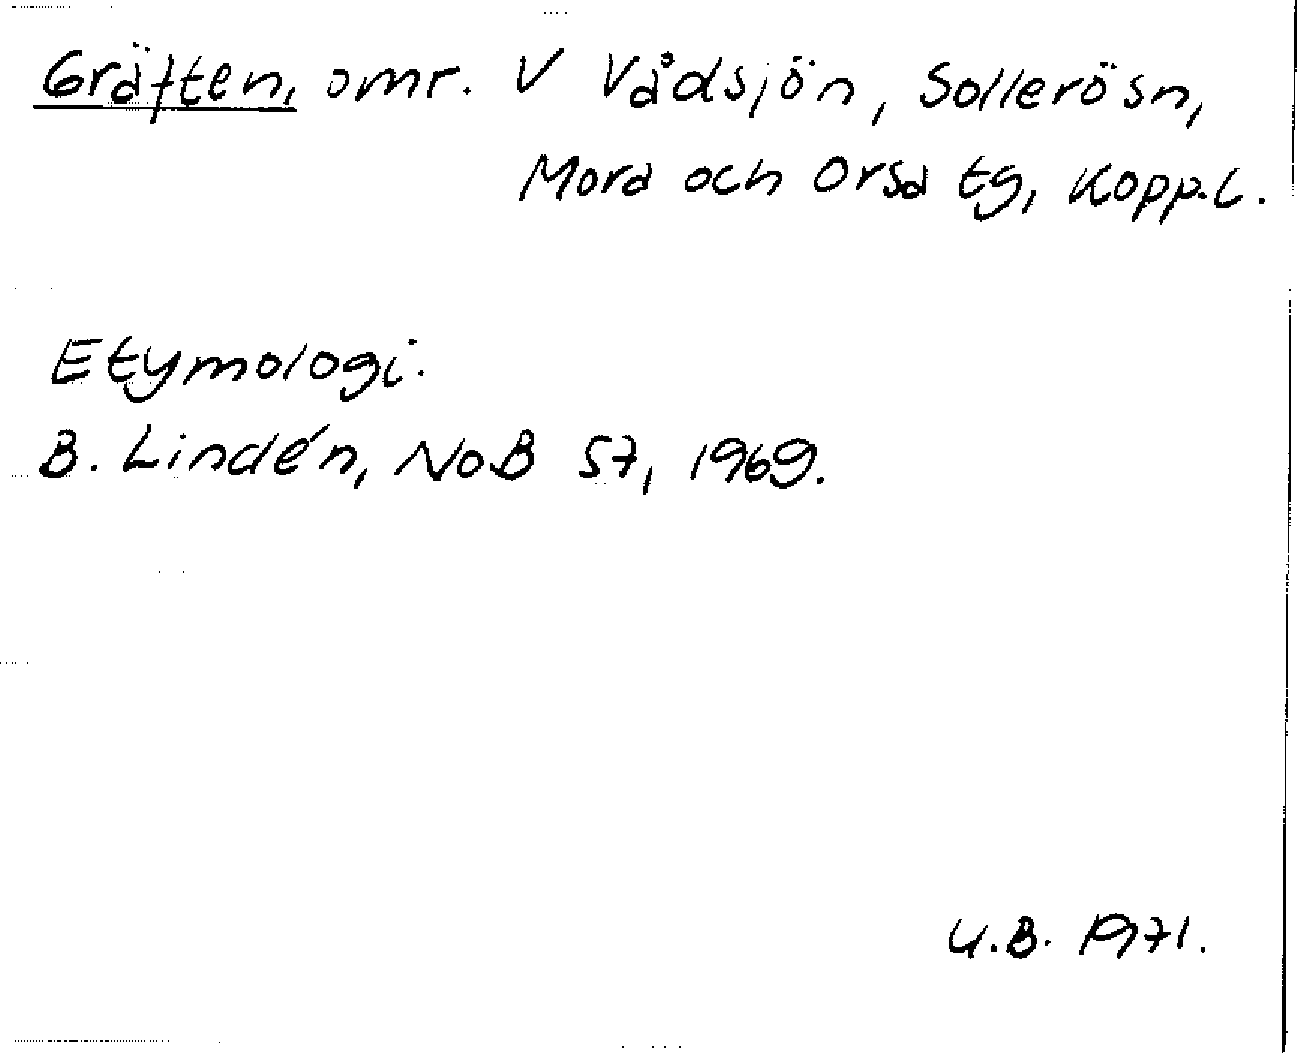 Gräften, omr. V Vådsjön, Sollerösn,
Mora och Orsa tg, Kopp.l.
Etymologi.
B. Lindén, NoB 57, 1969.
U.B. 1971.